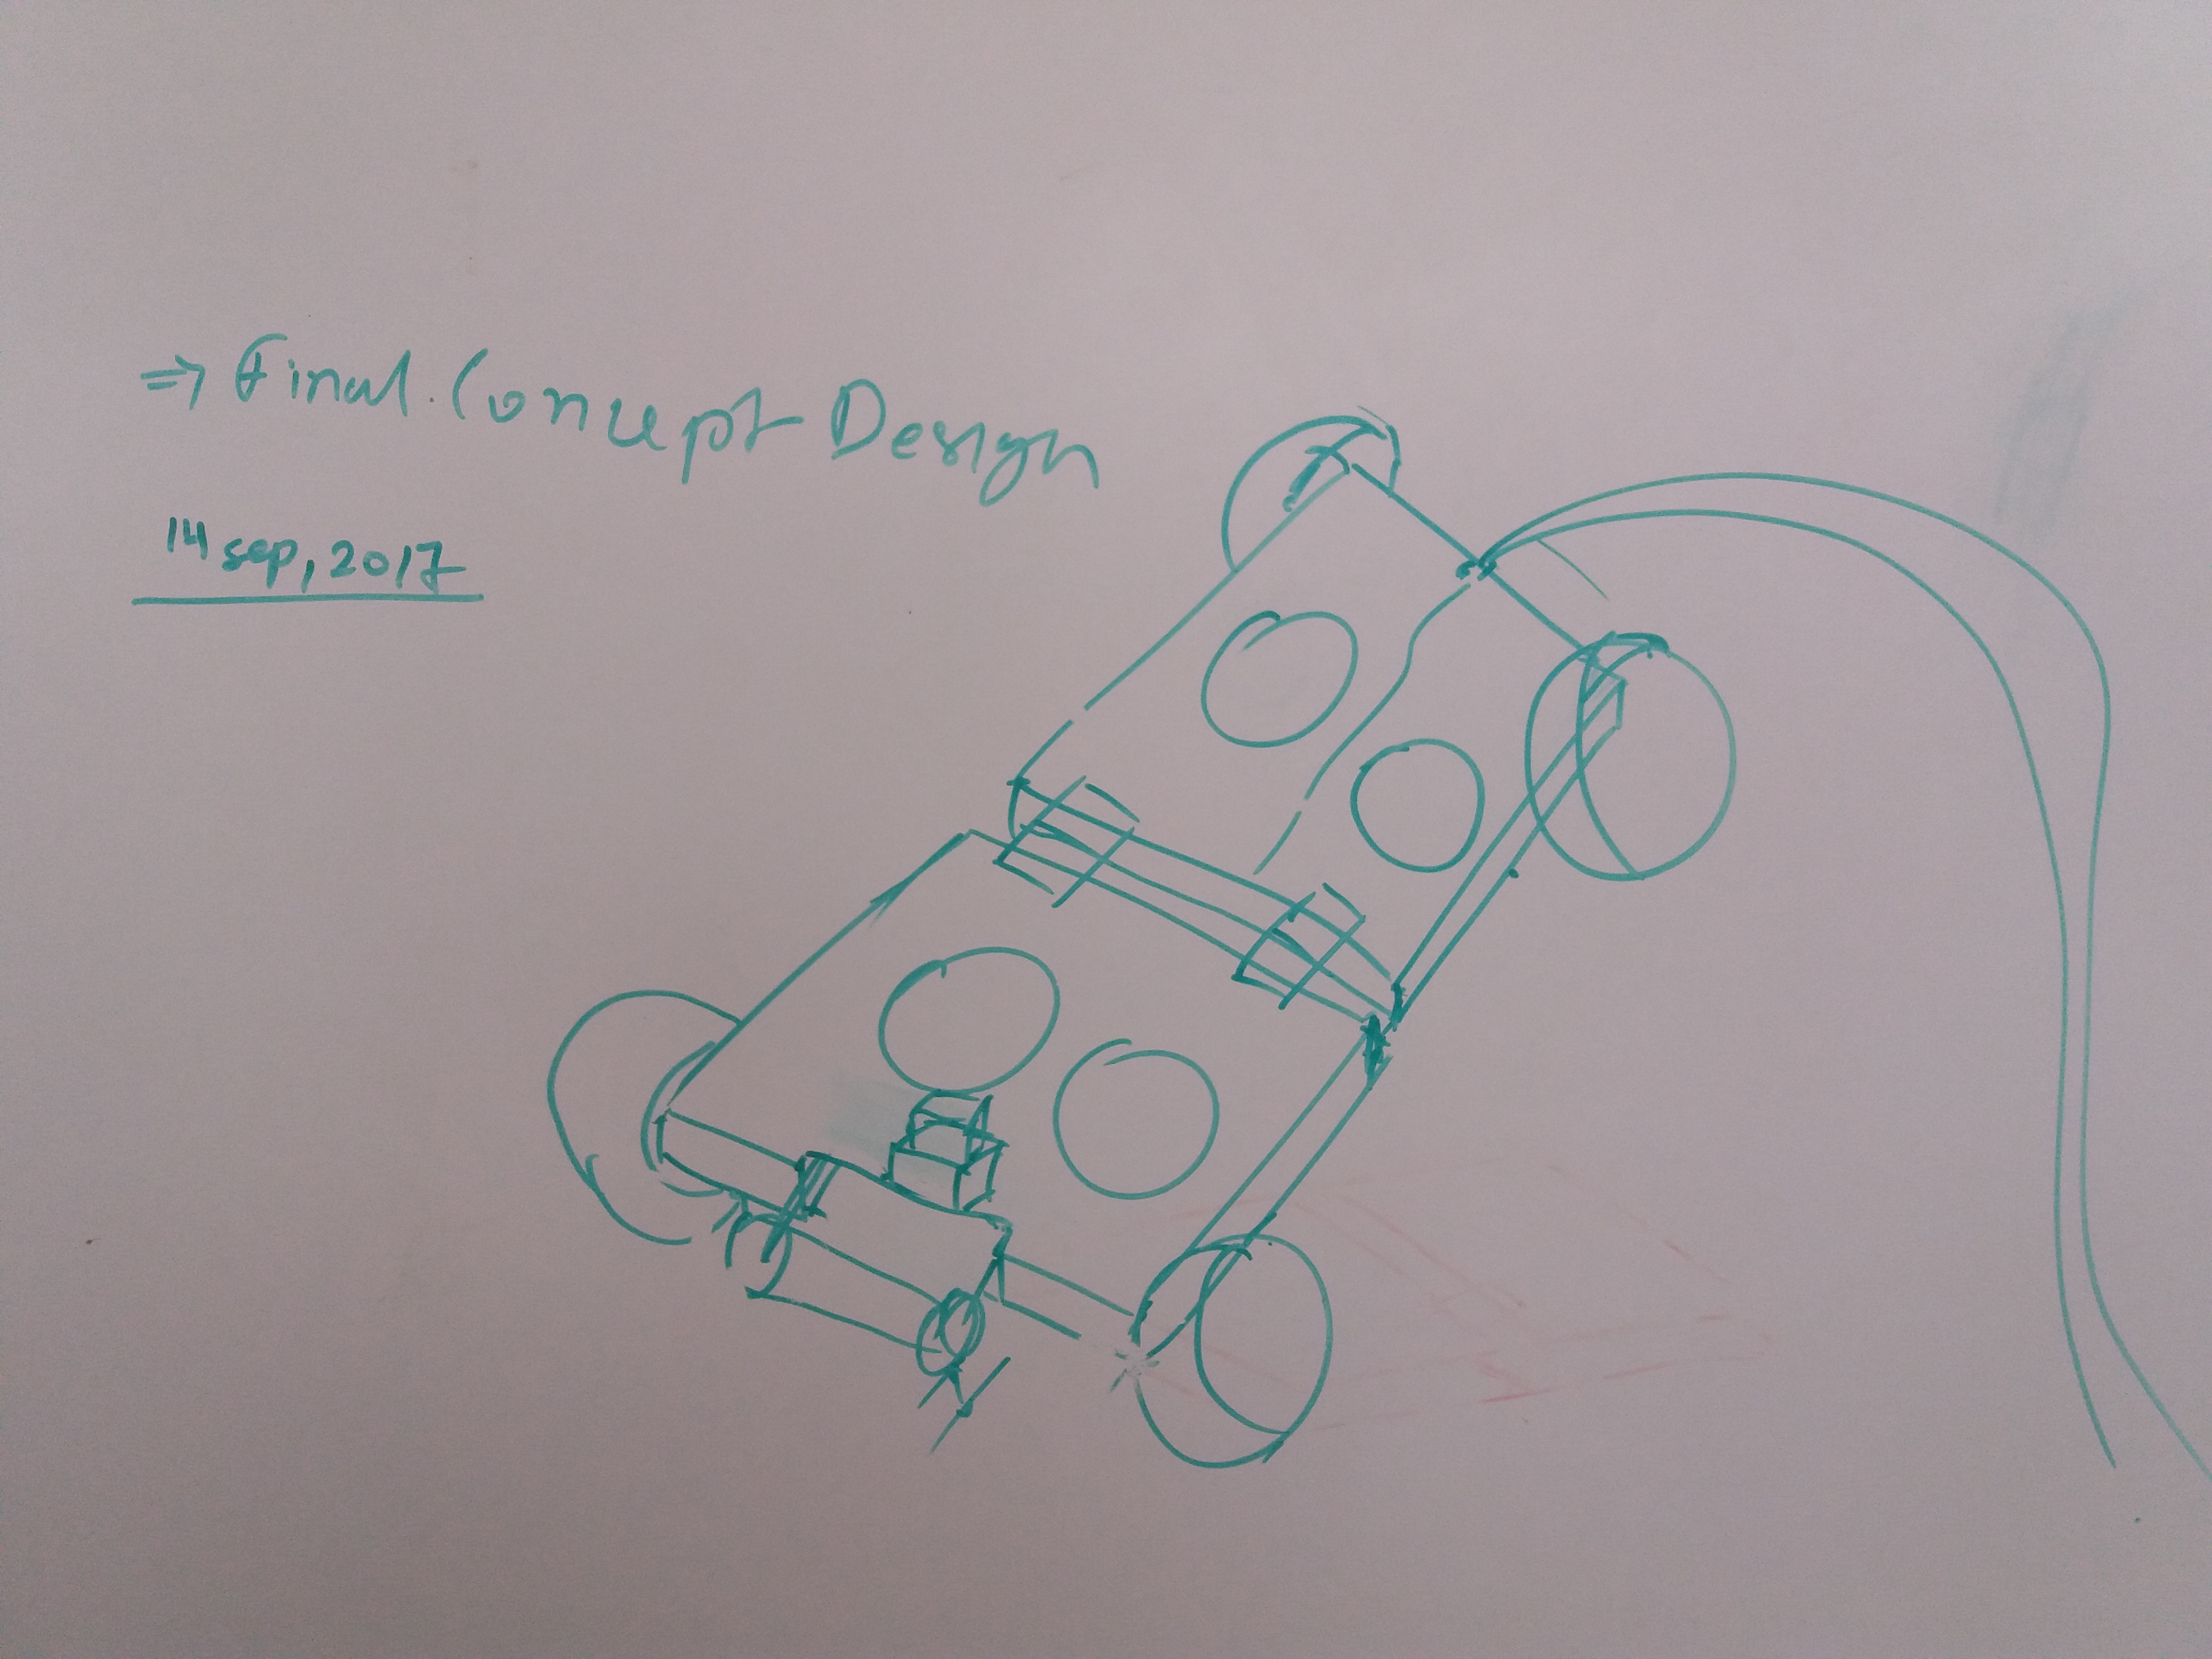 ⇒ Final. Concept Design
14 sep, 2017